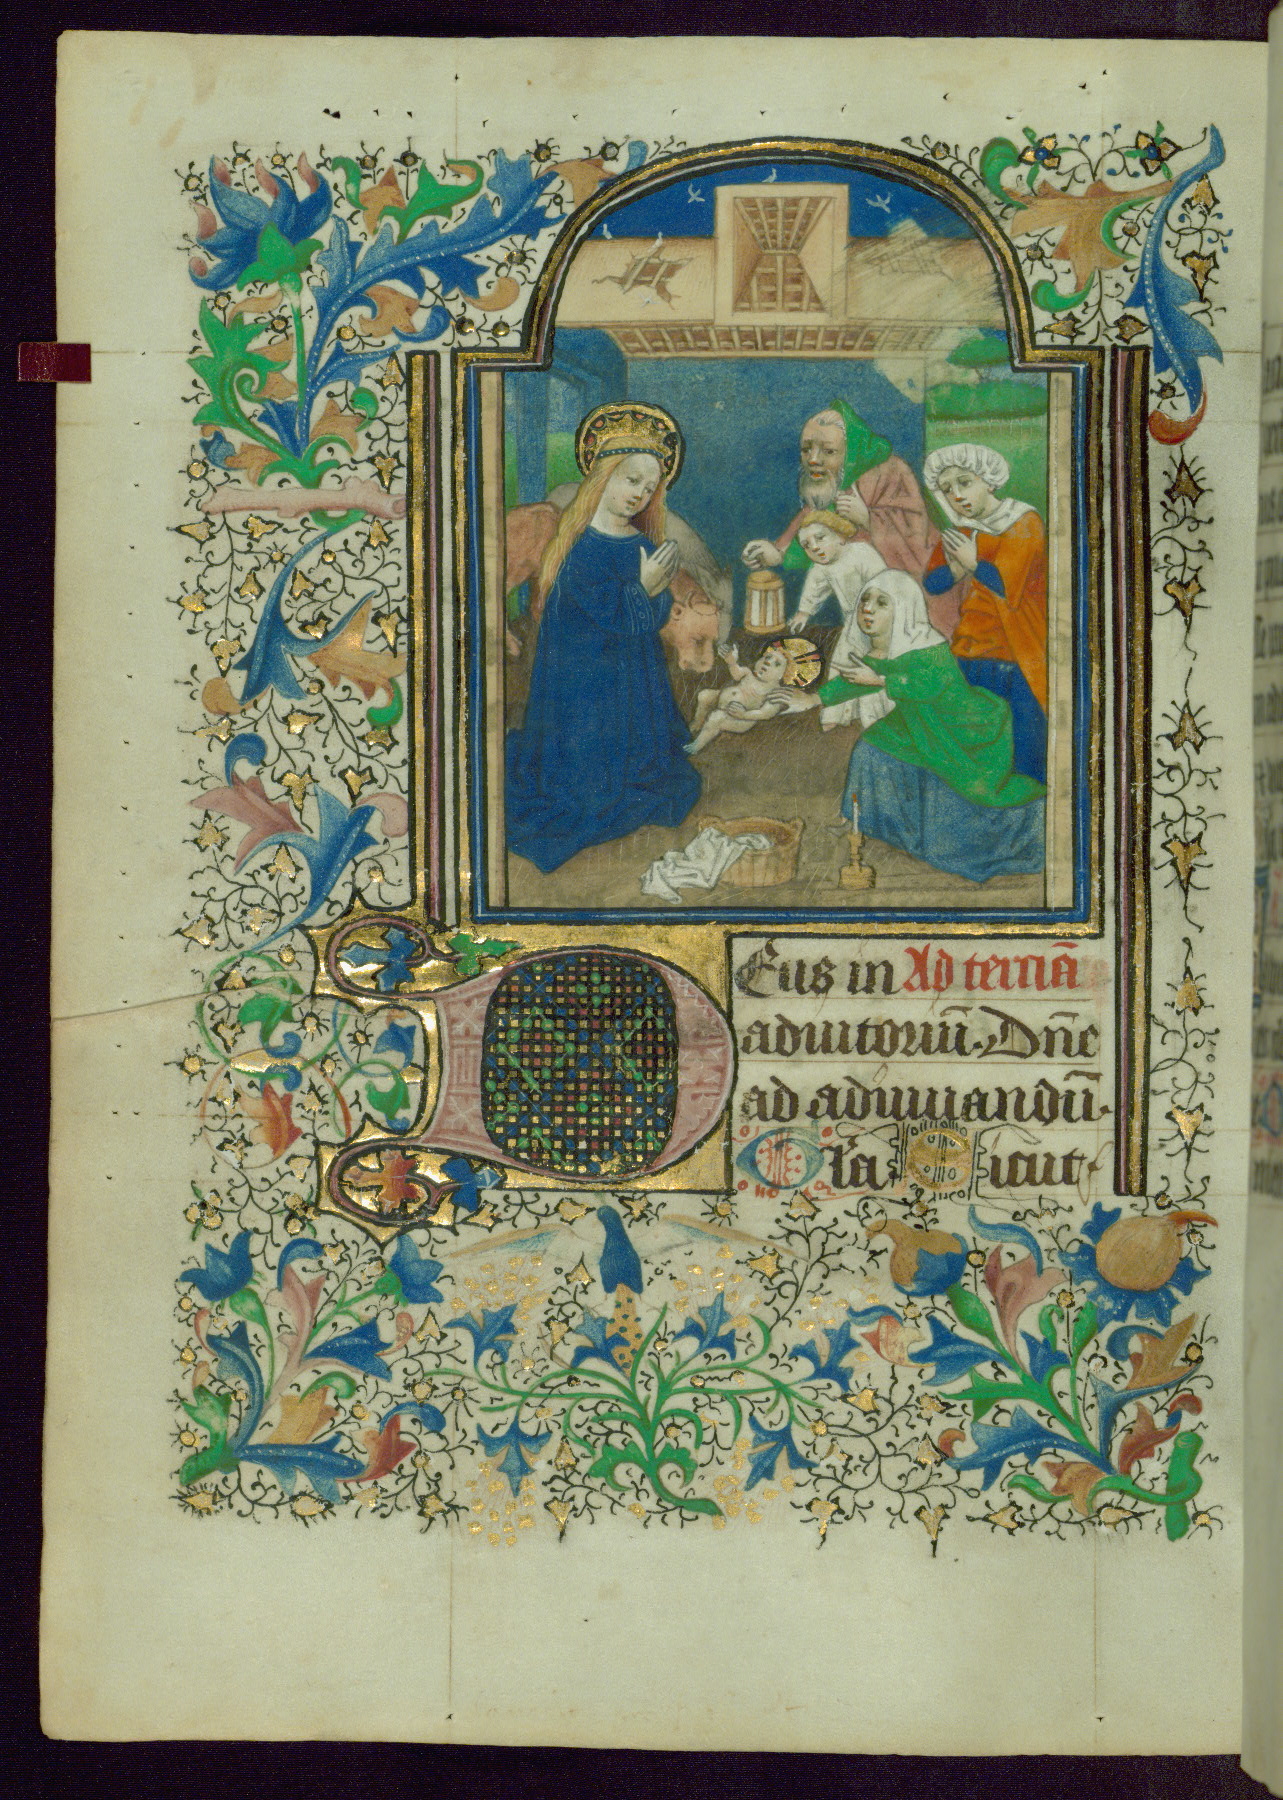 Deus in Ad terciā
adiutoriū. Dn̄e
ad adiuuandū.
Gl'a sicut